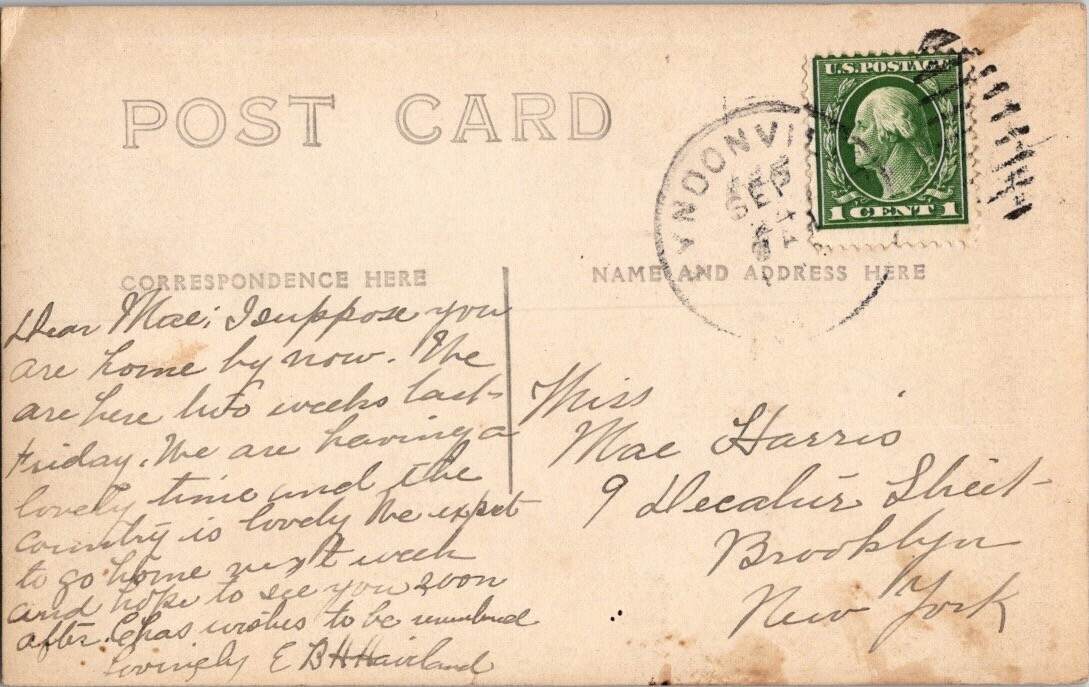 POST CARD
U.S. POSTAGE
1 CENT 1
SEP
CORRESPONDENCE HERE
NAME AND ADDRESS HERE
Dear Mae; I suppose you
are home by now. We
are here two weeks last
Friday. We are having a
lovely time and the
country is lovely We expect
to go home next week
and hope to see you soon
after. Chas wishes to be
Lovingly E B
Miss
Mae Harris
9 Decatur Street
Brooklyn
New York